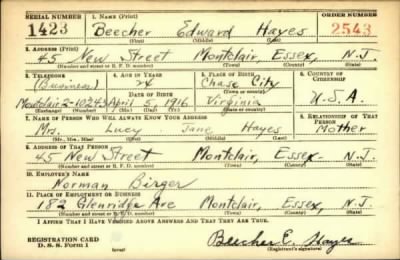 SERIAL NUMBER 1. NAME (Print) ORDER NUMBER
1423 Beecher Edward Hayes 2543
(First) (Middle) (Last)
2. ADDRESS (Print)
45 New Street Montclair, Essex, N.J.
(Number and street or R. F. D. number) (Town) (County) (State)
3. TELEPHONE 4. AGE IN YEARS 5. PLACE OF BIRTH 6. COUNTRY OF CITIZENSHIP
(Business) 24 Chase City
DATE OF BIRTH (Town or county)
Montclair 2-10243 April 5, 1916 Virginia U.S.A.
(Exchange) (Number) (Mo.) (Day) (Yr.) (State or country)
7. NAME OF PERSON WHO WILL ALWAYS KNOW YOUR ADDRESS 8. RELATIONSHIP OF THAT PERSON
Mrs. Lucy Jane Hayes Mother
(Mr., Mrs., Miss) (First) (Middle) (Last)
9. ADDRESS OF THAT PERSON
45 New Street Montclair, Essex N.J.
(Number and street or R. F. D. number) (Town) (County) (State)
10. EMPLOYER'S NAME
Norman Birger
11. PLACE OF EMPLOYMENT OR BUSINESS
182 Glenridge Ave Montclair, Essex, N.J.
(Number and street or R. F. D. number) (Town) (County) (State)
I AFFIRM THAT I HAVE VERIFIED ABOVE ANSWERS AND THAT THEY ARE TRUE.
REGISTRATION CARD
D. S. S. Form 1
Beecher E. Hayes
(Registrant's signature)